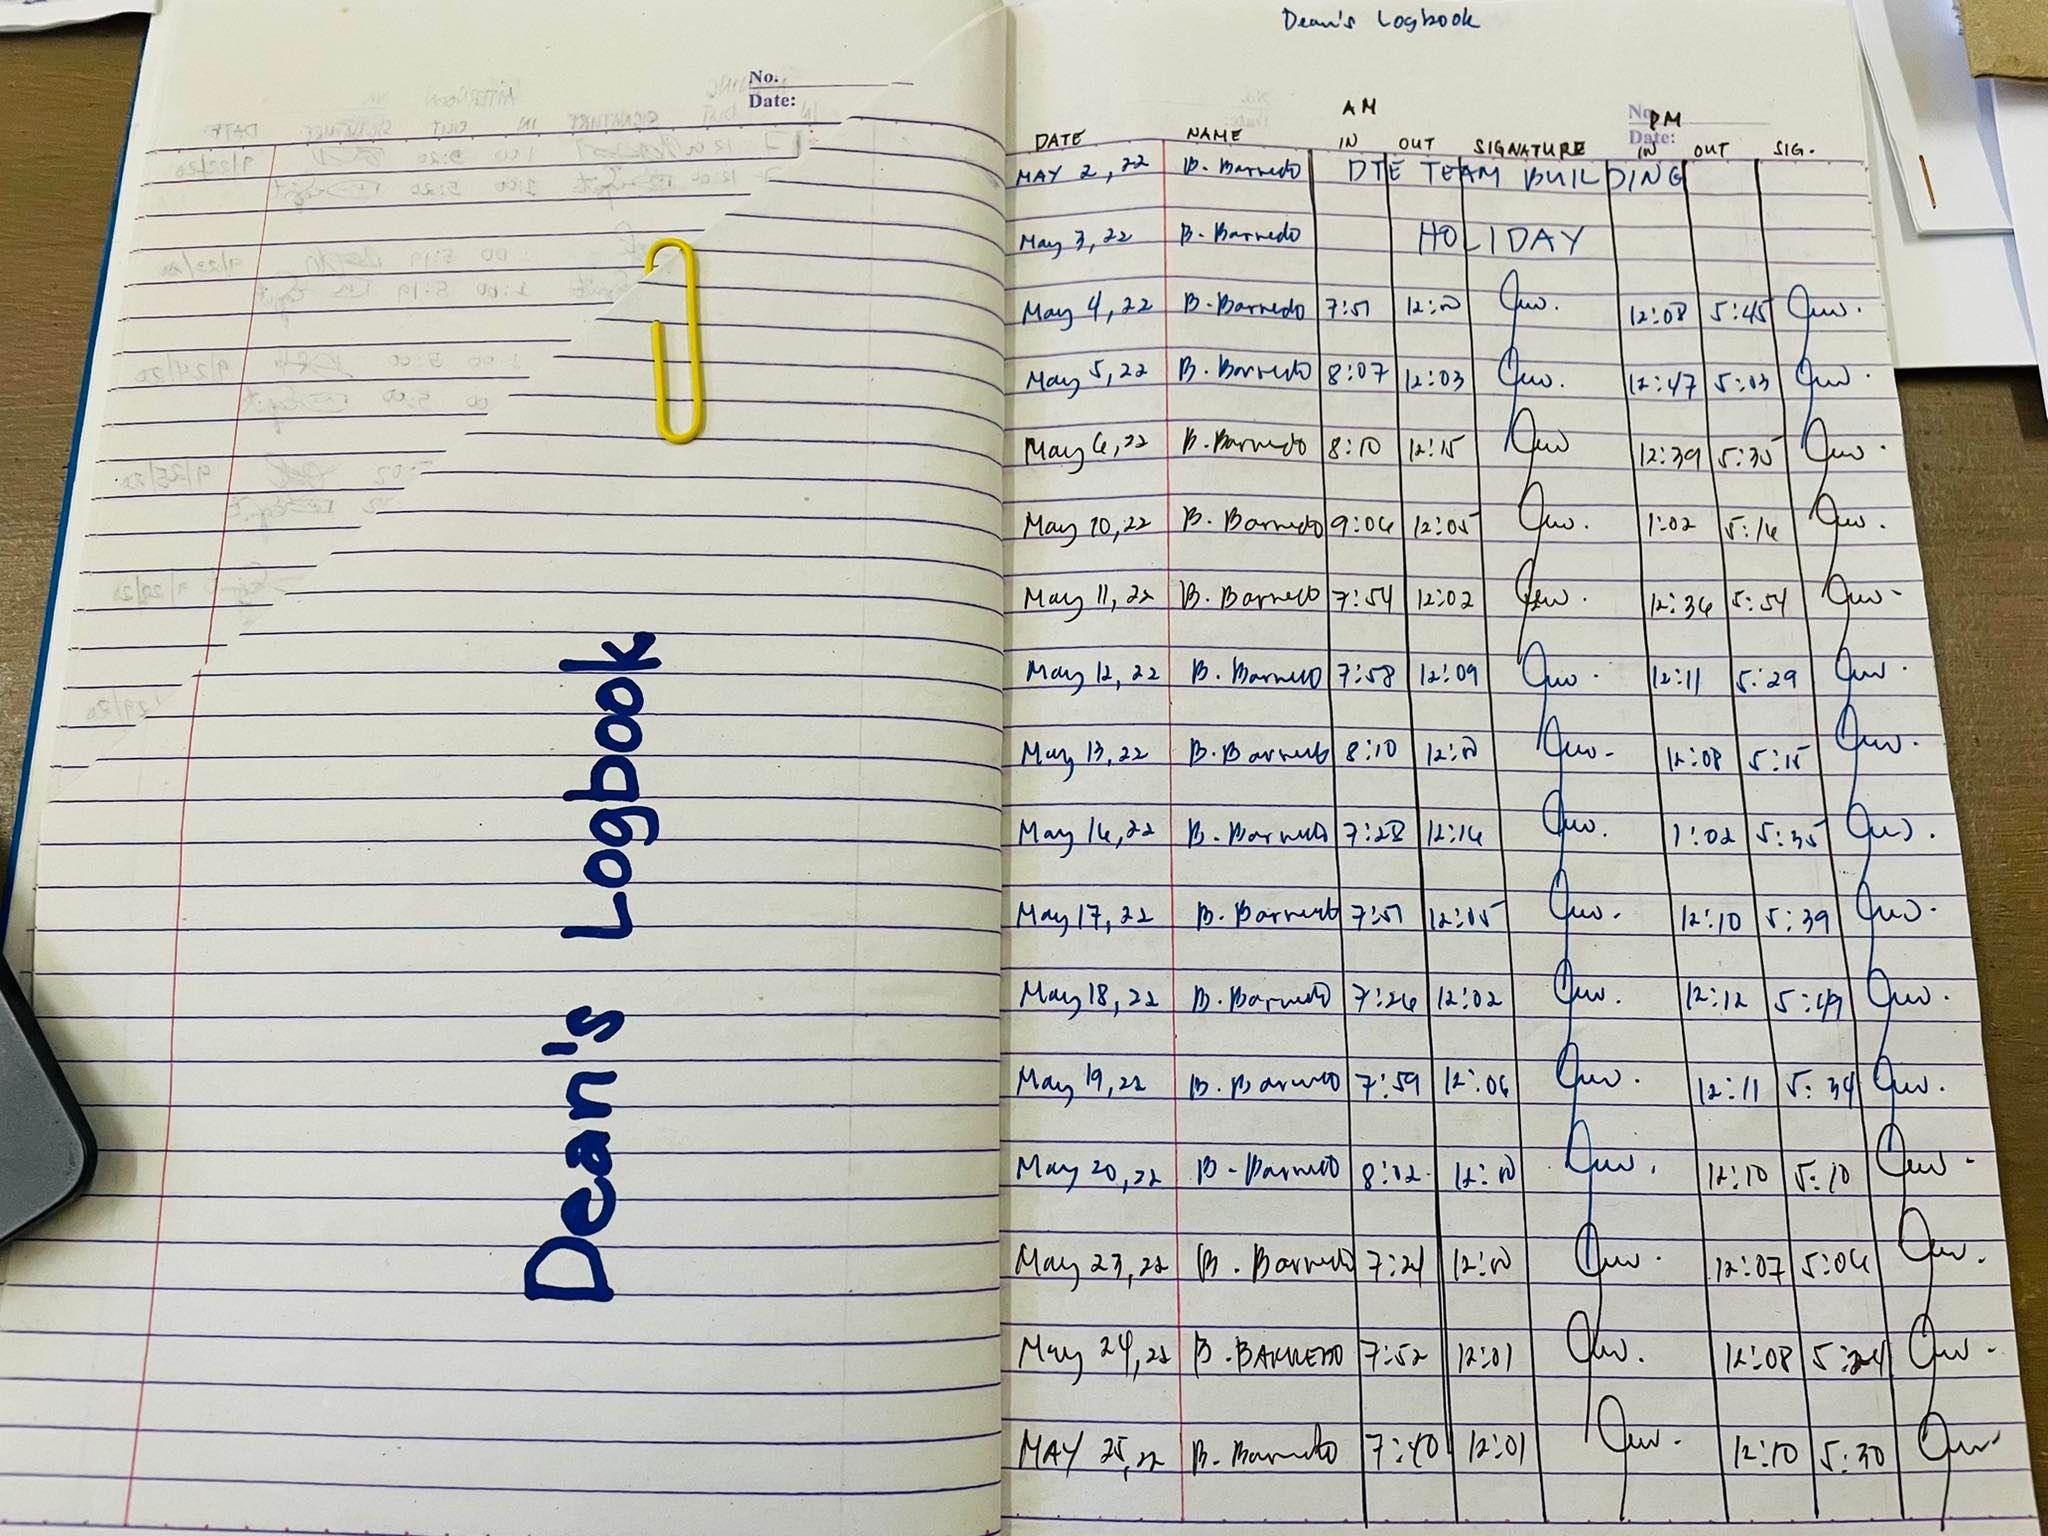 No.
Date:
Dean's Logbook
Dean's Logbook
No.
Date:
AM PM
DATE NAME IN OUT SIGNATURE IN OUT SIG.
MAY 2, 22 B. Barnedo DTE TEAM BUILDING
May 3, 22 B. Barnedo HOLIDAY
May 4, 22 B. Barnedo 7:51 12:00 12:08 5:45
May 5, 22 B. Barnedo 8:07 12:03 12:47 5:03
May 6, 22 B. Barnedo 8:10 12:15 12:39 5:35
May 10, 22 B. Barnedo 9:06 12:05 1:02 5:16
May 11, 22 B. Barnedo 7:54 12:02 12:36 5:54
May 12, 22 B. Barnedo 7:58 12:09 12:11 5:29
May 13, 22 B. Barnedo 8:10 12:10 12:08 5:15
May 16, 22 B. Barnedo 7:28 12:16 1:02 5:35
May 17, 22 B. Barnedo 7:51 12:05 12:10 5:39
May 18, 22 B. Barnedo 7:26 12:02 12:12 5:49
May 19, 22 B. Barnedo 7:59 12:06 12:11 5:34
May 20, 22 B. Barnedo 8:02 12:10 12:10 5:10
May 23, 22 B. Barnedo 7:21 12:10 12:07 5:06
May 24, 22 B. BARNEDO 7:52 12:01 12:08 5:24
MAY 25, 22 B. Barnedo 7:40 12:01 12:10 5:30